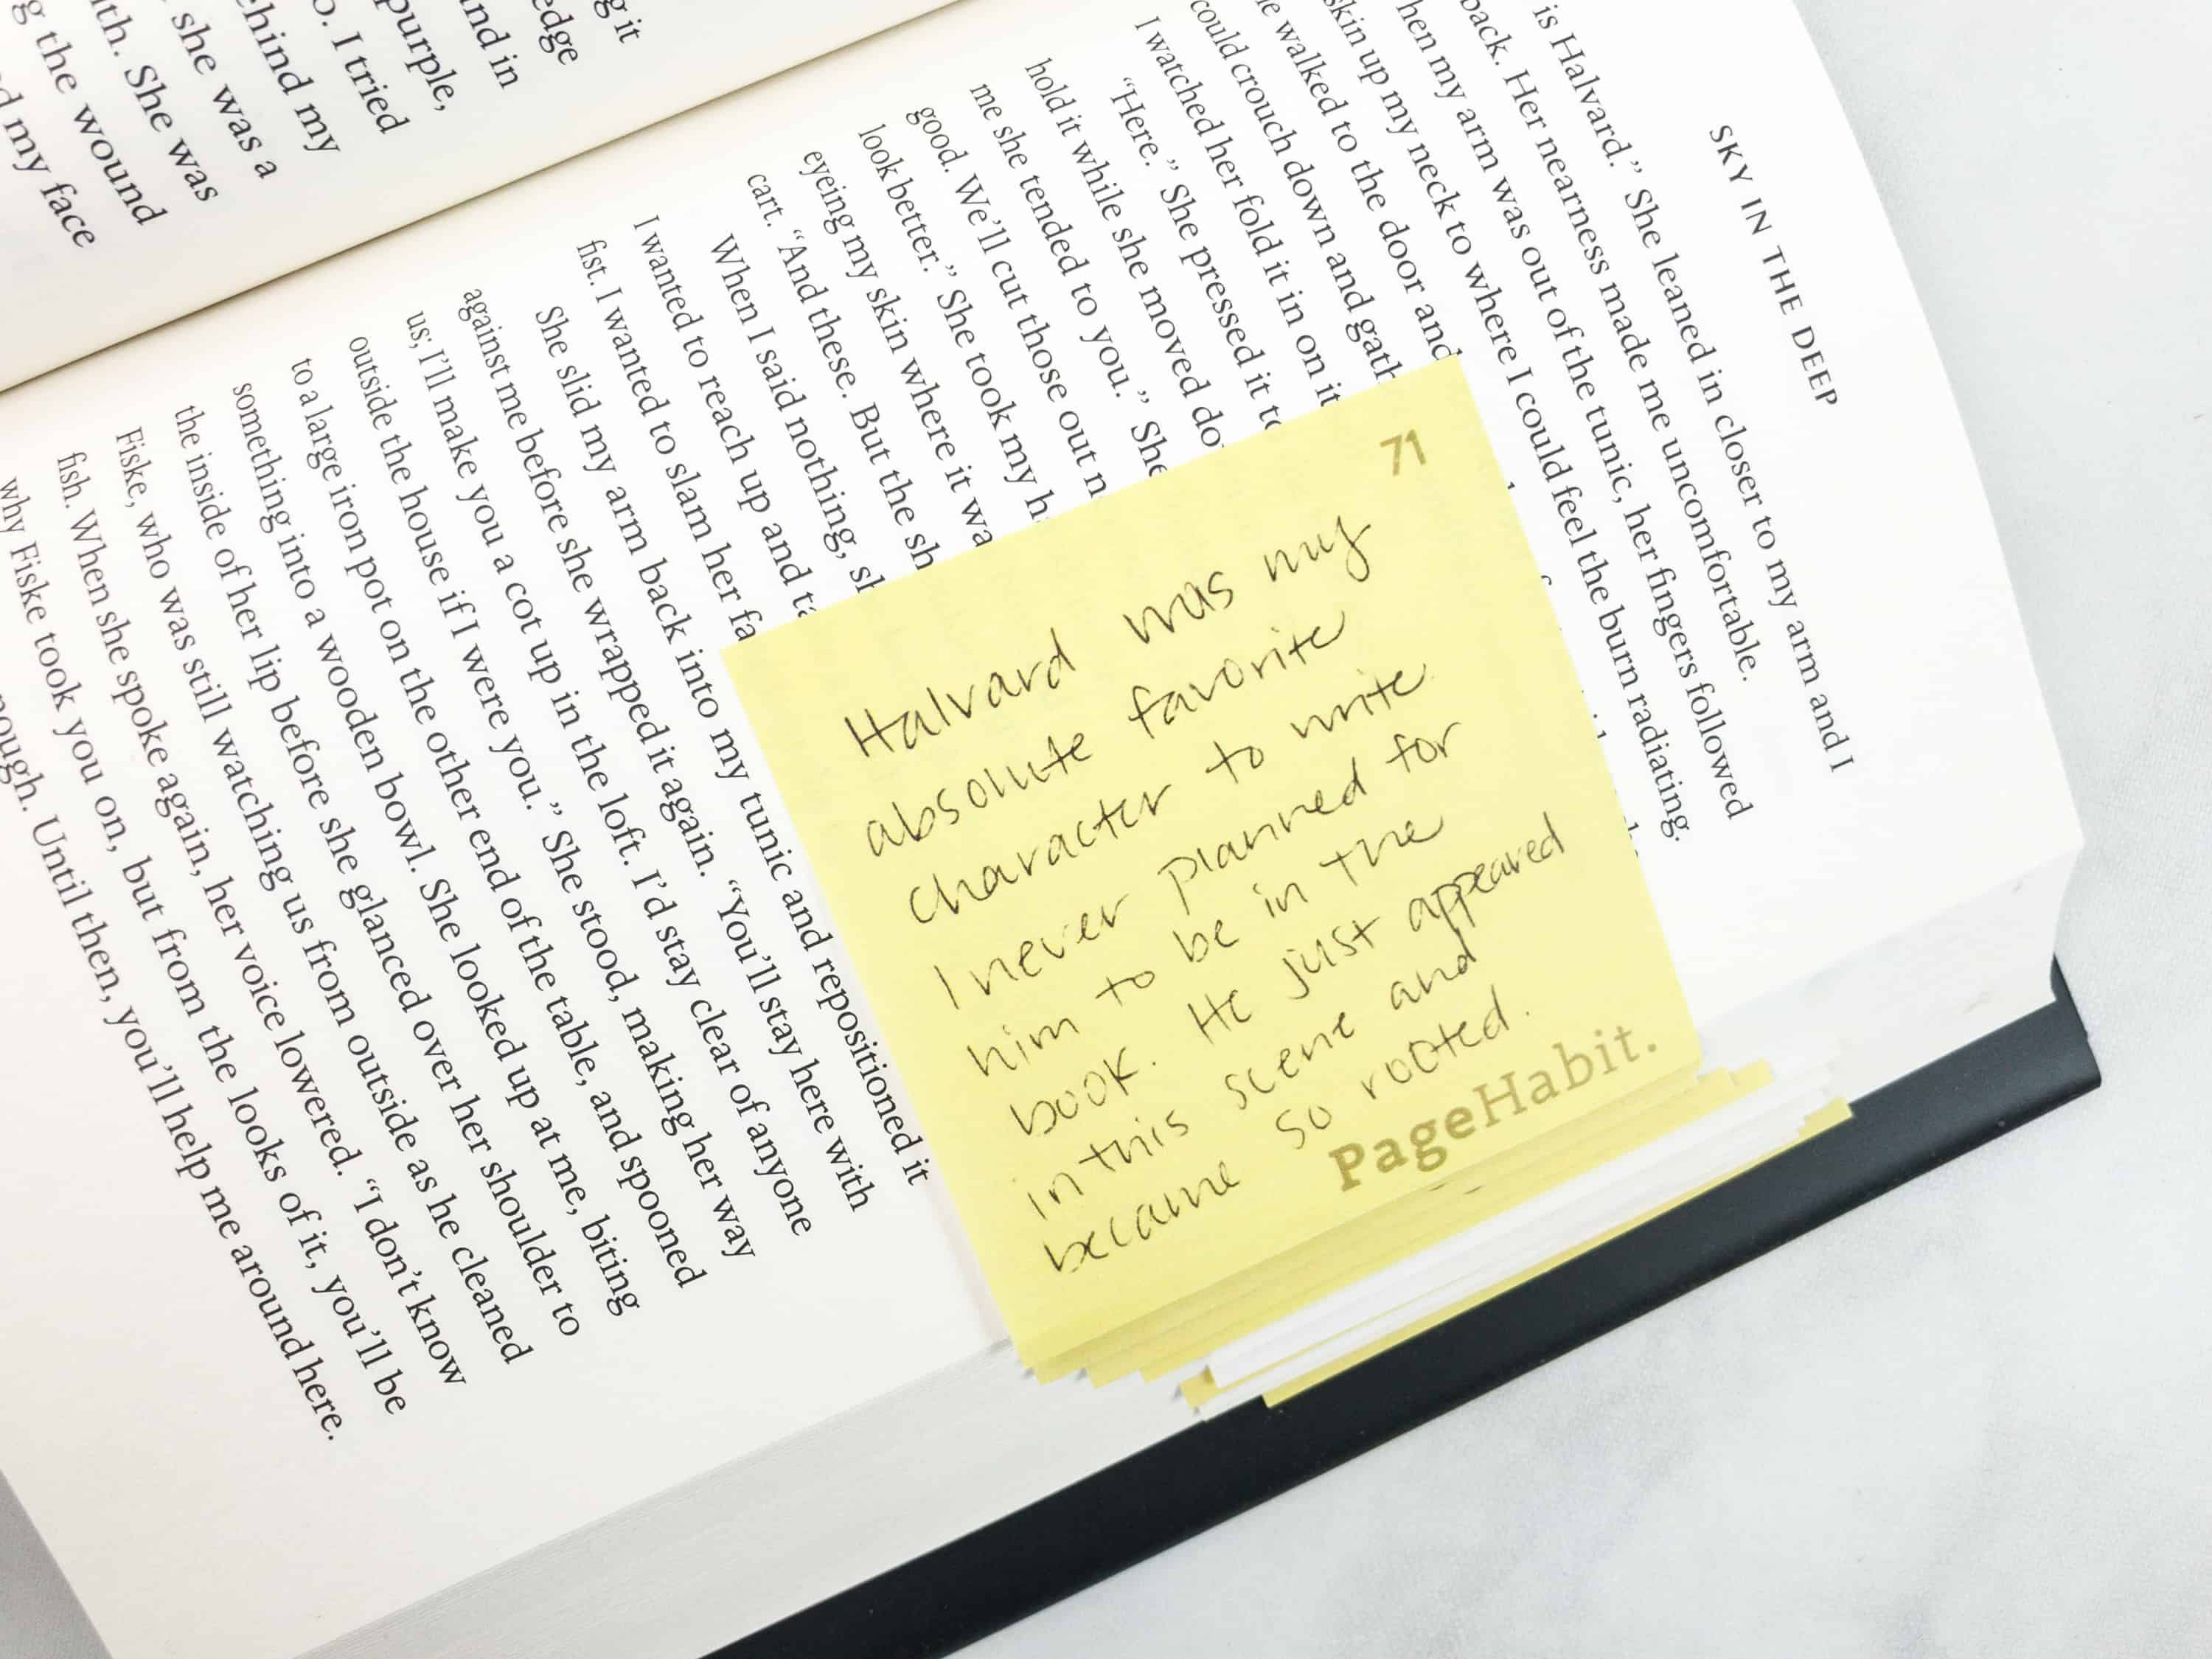 g it
edge
and in
purple,
o. I tried
ehind my
she was a
ith. She was
g the wound
d my face
SKY IN THE DEEP
is Halvard.” She leaned in closer to my arm and I
back. Her nearness made me uncomfortable.
hen my arm was out of the tunic, her fingers followed
skin up my neck to where I could feel the burn radiating.
e walked to the door and
could crouch down and gath
I watched her fold it in on it
“Here.” She pressed it to
hold it while she moved do
me she tended to you.” She
good. We’ll cut those out n
look better.” She took my h
eyeing my skin where it wa
cart. “And these. But the sh
When I said nothing, sh
I wanted to reach up and ta
fist. I wanted to slam her fa
She slid my arm back into my tunic and repositioned it
against me before she wrapped it again. “You’ll stay here with
us; I’ll make you a cot up in the loft. I’d stay clear of anyone
outside the house if I were you.” She stood, making her way
to a large iron pot on the other end of the table, and spooned
something into a wooden bowl. She looked up at me, biting
the inside of her lip before she glanced over her shoulder to
Fiske, who was still watching us from outside as he cleaned
fish. When she spoke again, her voice lowered. “I don’t know
why Fiske took you on, but from the looks of it, you’ll be
nough. Until then, you’ll help me around here.
71
Halvard was my
absolute favorite
character to write
I never planned for
him to be in the
book. He just appeared
in this scene and
became so rooted.
PageHabit.